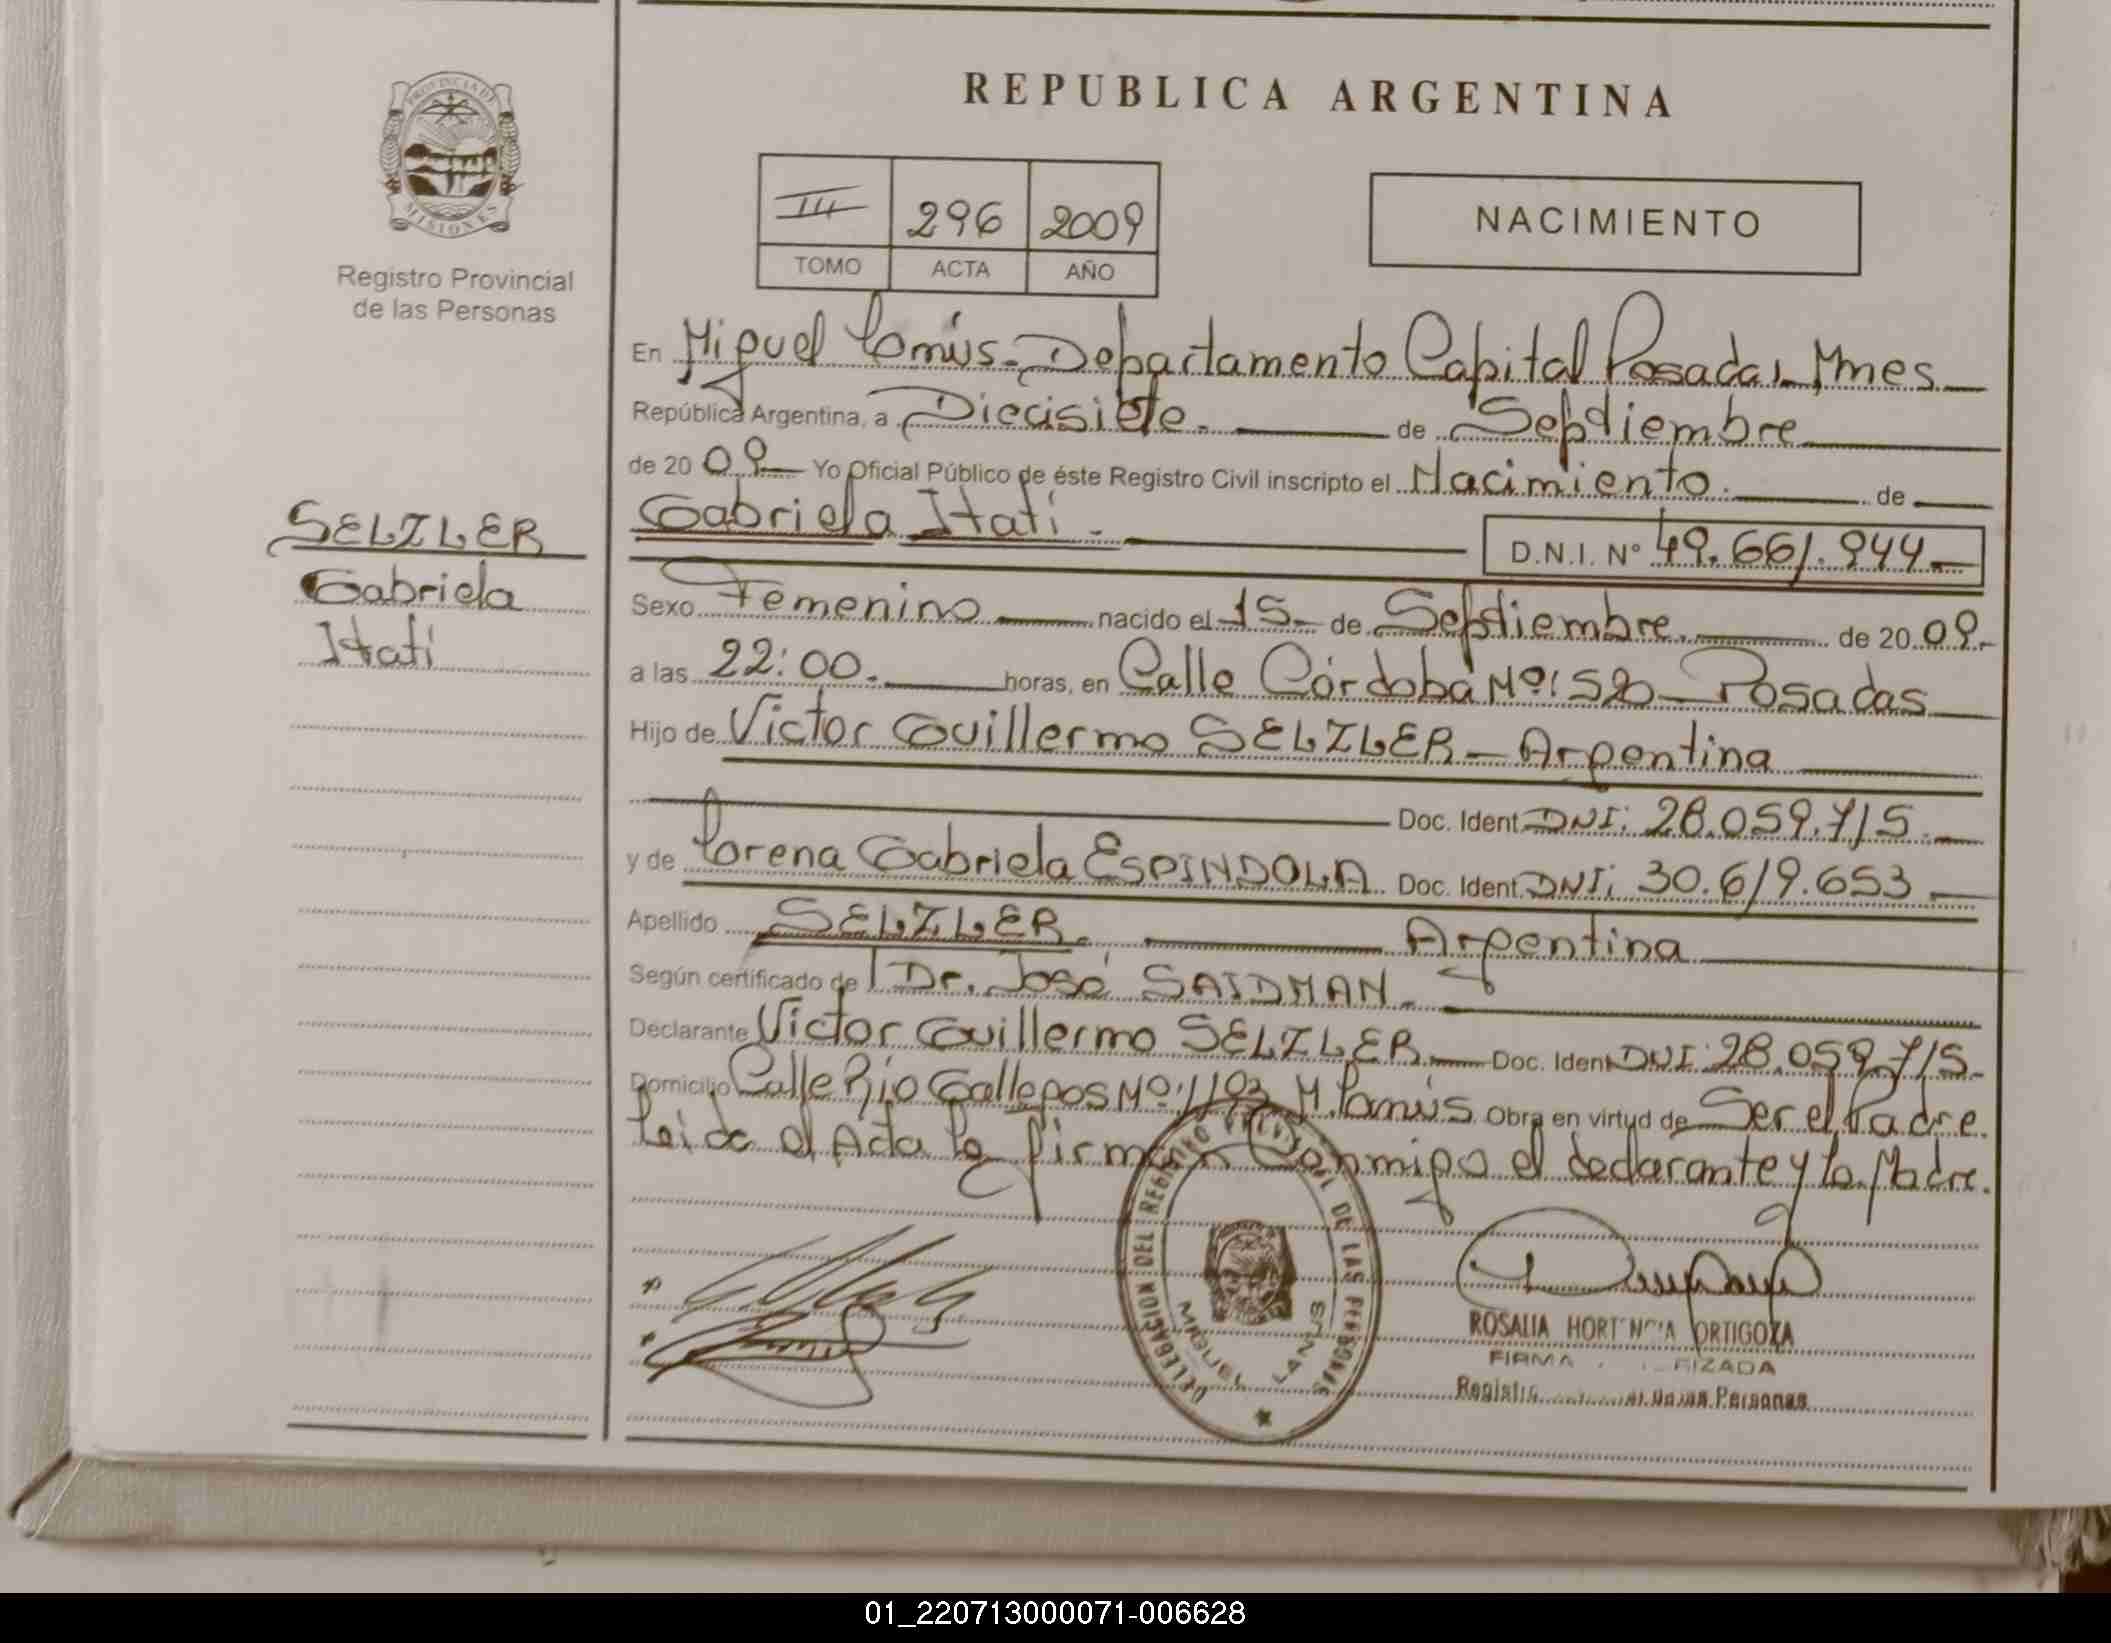 REPUBLICA ARGENTINA
PROVINCIA DE
MISIONES
Registro Provincial
de las Personas
III 296 2009
TOMO ACTA AÑO
NACIMIENTO
En Miguel Lanús - Departamento Capital Posadas, Mnes
República Argentina, a Diecisiete. de Septiembre
de 20 09 Yo Oficial Público de éste Registro Civil inscripto el Nacimiento. de
Gabriela Itatí. D.N.I. N° 49.661.944
SELZLER
Gabriela
Itatí
Sexo Femenino nacido el 15 de Septiembre. de 20 09.
a las 22:00. horas, en Calle Córdoba Nº 1520 - Posadas
Hijo de Victor Guillermo SELZLER - Argentina
Doc. Ident. DNI: 28.059.715.
y de Lorena Gabriela ESPINDOLA Doc. Ident. DNI: 30.619.653
Apellido SELZLER. Argentina
Según certificado de Dr. José SAIDMAN.
Declarante Victor Guillermo SELZLER. Doc. Ident DNI: 28.059.715.
Domicilio Calle Rio Gallegos Nº: 1193 M. Lanús. Obra en virtud de Ser el Padre.
Leida el Acta la firman Conmigo el declarante y la Madre.
DELEGACION DEL REGISTRO PROVINCIAL DE LAS PERSONAS
MIGUEL LANUS
ROSALIA HORTENCIA ORTIGOZA
FIRMA
Personas
01_220713000071-006628